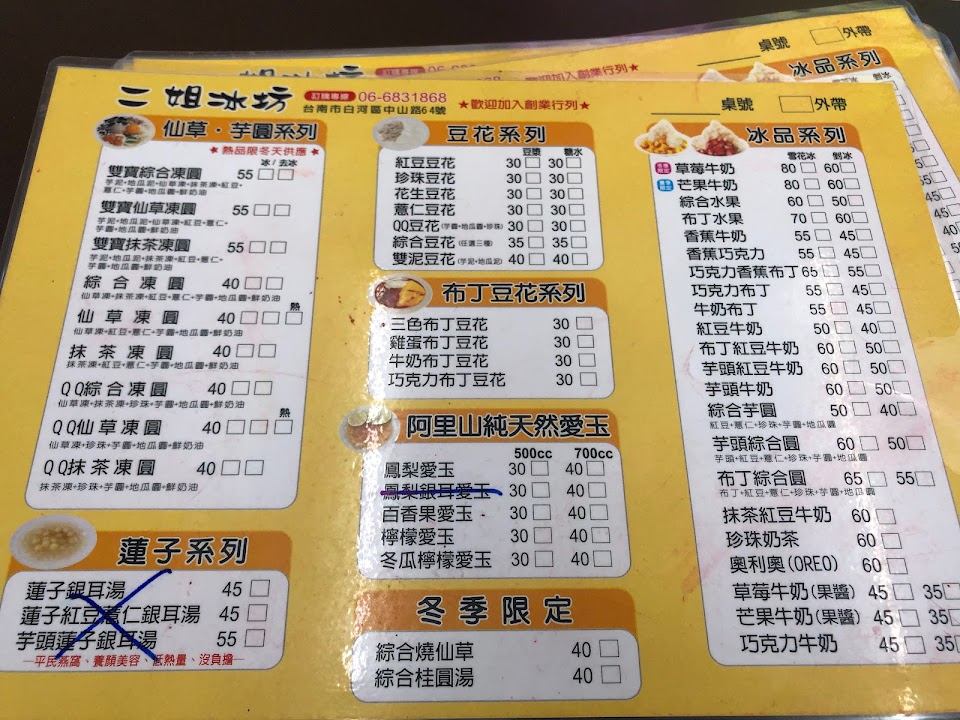 二姐冰坊 訂購專線 06-6831868
台南市白河區中山路64號
★歡迎加入創業行列★
桌號 外帶
仙草・芋圓系列
★熱品限冬天供應★
冰/去冰
雙寶綜合凍圓 55
芋泥+地瓜泥+仙草凍+抹茶凍+紅豆+
薏仁+芋圓+地瓜圓+鮮奶油
雙寶仙草凍圓 55
芋泥+地瓜泥+仙草凍+紅豆+薏仁+
芋圓+地瓜圓+鮮奶油
雙寶抹茶凍圓 55
芋泥+地瓜泥+抹茶凍+紅豆+薏仁+
芋圓+地瓜圓+鮮奶油
綜合凍圓 40
仙草凍+抹茶凍+紅豆+薏仁+芋圓+地瓜圓+鮮奶油
熱
仙草凍圓 40
仙草凍+紅豆+薏仁+芋圓+地瓜圓+鮮奶油
抹茶凍圓 40
抹茶凍+紅豆+薏仁+芋圓+地瓜圓+鮮奶油
QQ綜合凍圓 40
仙草凍+抹茶凍+珍珠+芋圓+地瓜圓+鮮奶油
熱
QQ仙草凍圓 40
仙草凍+珍珠+芋圓+地瓜圓+鮮奶油
QQ抹茶凍圓 40
抹茶凍+珍珠+芋圓+地瓜圓+鮮奶油
蓮子系列
蓮子銀耳湯 45
蓮子紅豆薏仁銀耳湯 45
芋頭蓮子銀耳湯 55
—平民燕窩、養顏美容、低熱量、沒負擔—
豆花系列
豆漿 糖水
紅豆豆花 30 30
珍珠豆花 30 30
花生豆花 30 30
薏仁豆花 30 30
QQ豆花(芋圓+地瓜圓+珍珠) 30 30
綜合豆花(任選三種) 35 35
雙泥豆花(芋泥+地瓜泥) 40 40
布丁豆花系列
三色布丁豆花 30
雞蛋布丁豆花 30
牛奶布丁豆花 30
巧克力布丁豆花 30
阿里山純天然愛玉
500cc 700cc
鳳梨愛玉 30 40
鳳梨銀耳愛玉 30 40
百香果愛玉 30 40
檸檬愛玉 30 40
冬瓜檸檬愛玉 30 40
冬季限定
綜合燒仙草 40
綜合桂圓湯 40
冰品系列
雪花冰 剉冰
草莓牛奶 80 60
芒果牛奶 80 60
綜合水果 60 50
布丁水果 70 60
香蕉牛奶 55 45
香蕉巧克力 55 45
巧克力香蕉布丁 65 55
巧克力布丁 55 45
牛奶布丁 55 45
紅豆牛奶 50 40
布丁紅豆牛奶 60 50
芋頭紅豆牛奶 60 50
芋頭牛奶 60 50
綜合芋圓 50 40
紅豆+薏仁+珍珠+芋圓+地瓜圓
芋頭綜合圓 60 50
芋頭+紅豆+薏仁+珍珠+芋圓+地瓜圓
布丁綜合圓 65 55
布丁+紅豆+薏仁+珍珠+芋圓+地瓜圓
抹茶紅豆牛奶 60
珍珠奶茶 60
奧利奧(OREO) 60
草莓牛奶(果醬) 45 35
芒果牛奶(果醬) 45 35
巧克力牛奶 45 35
桌號 外帶
冰品系列